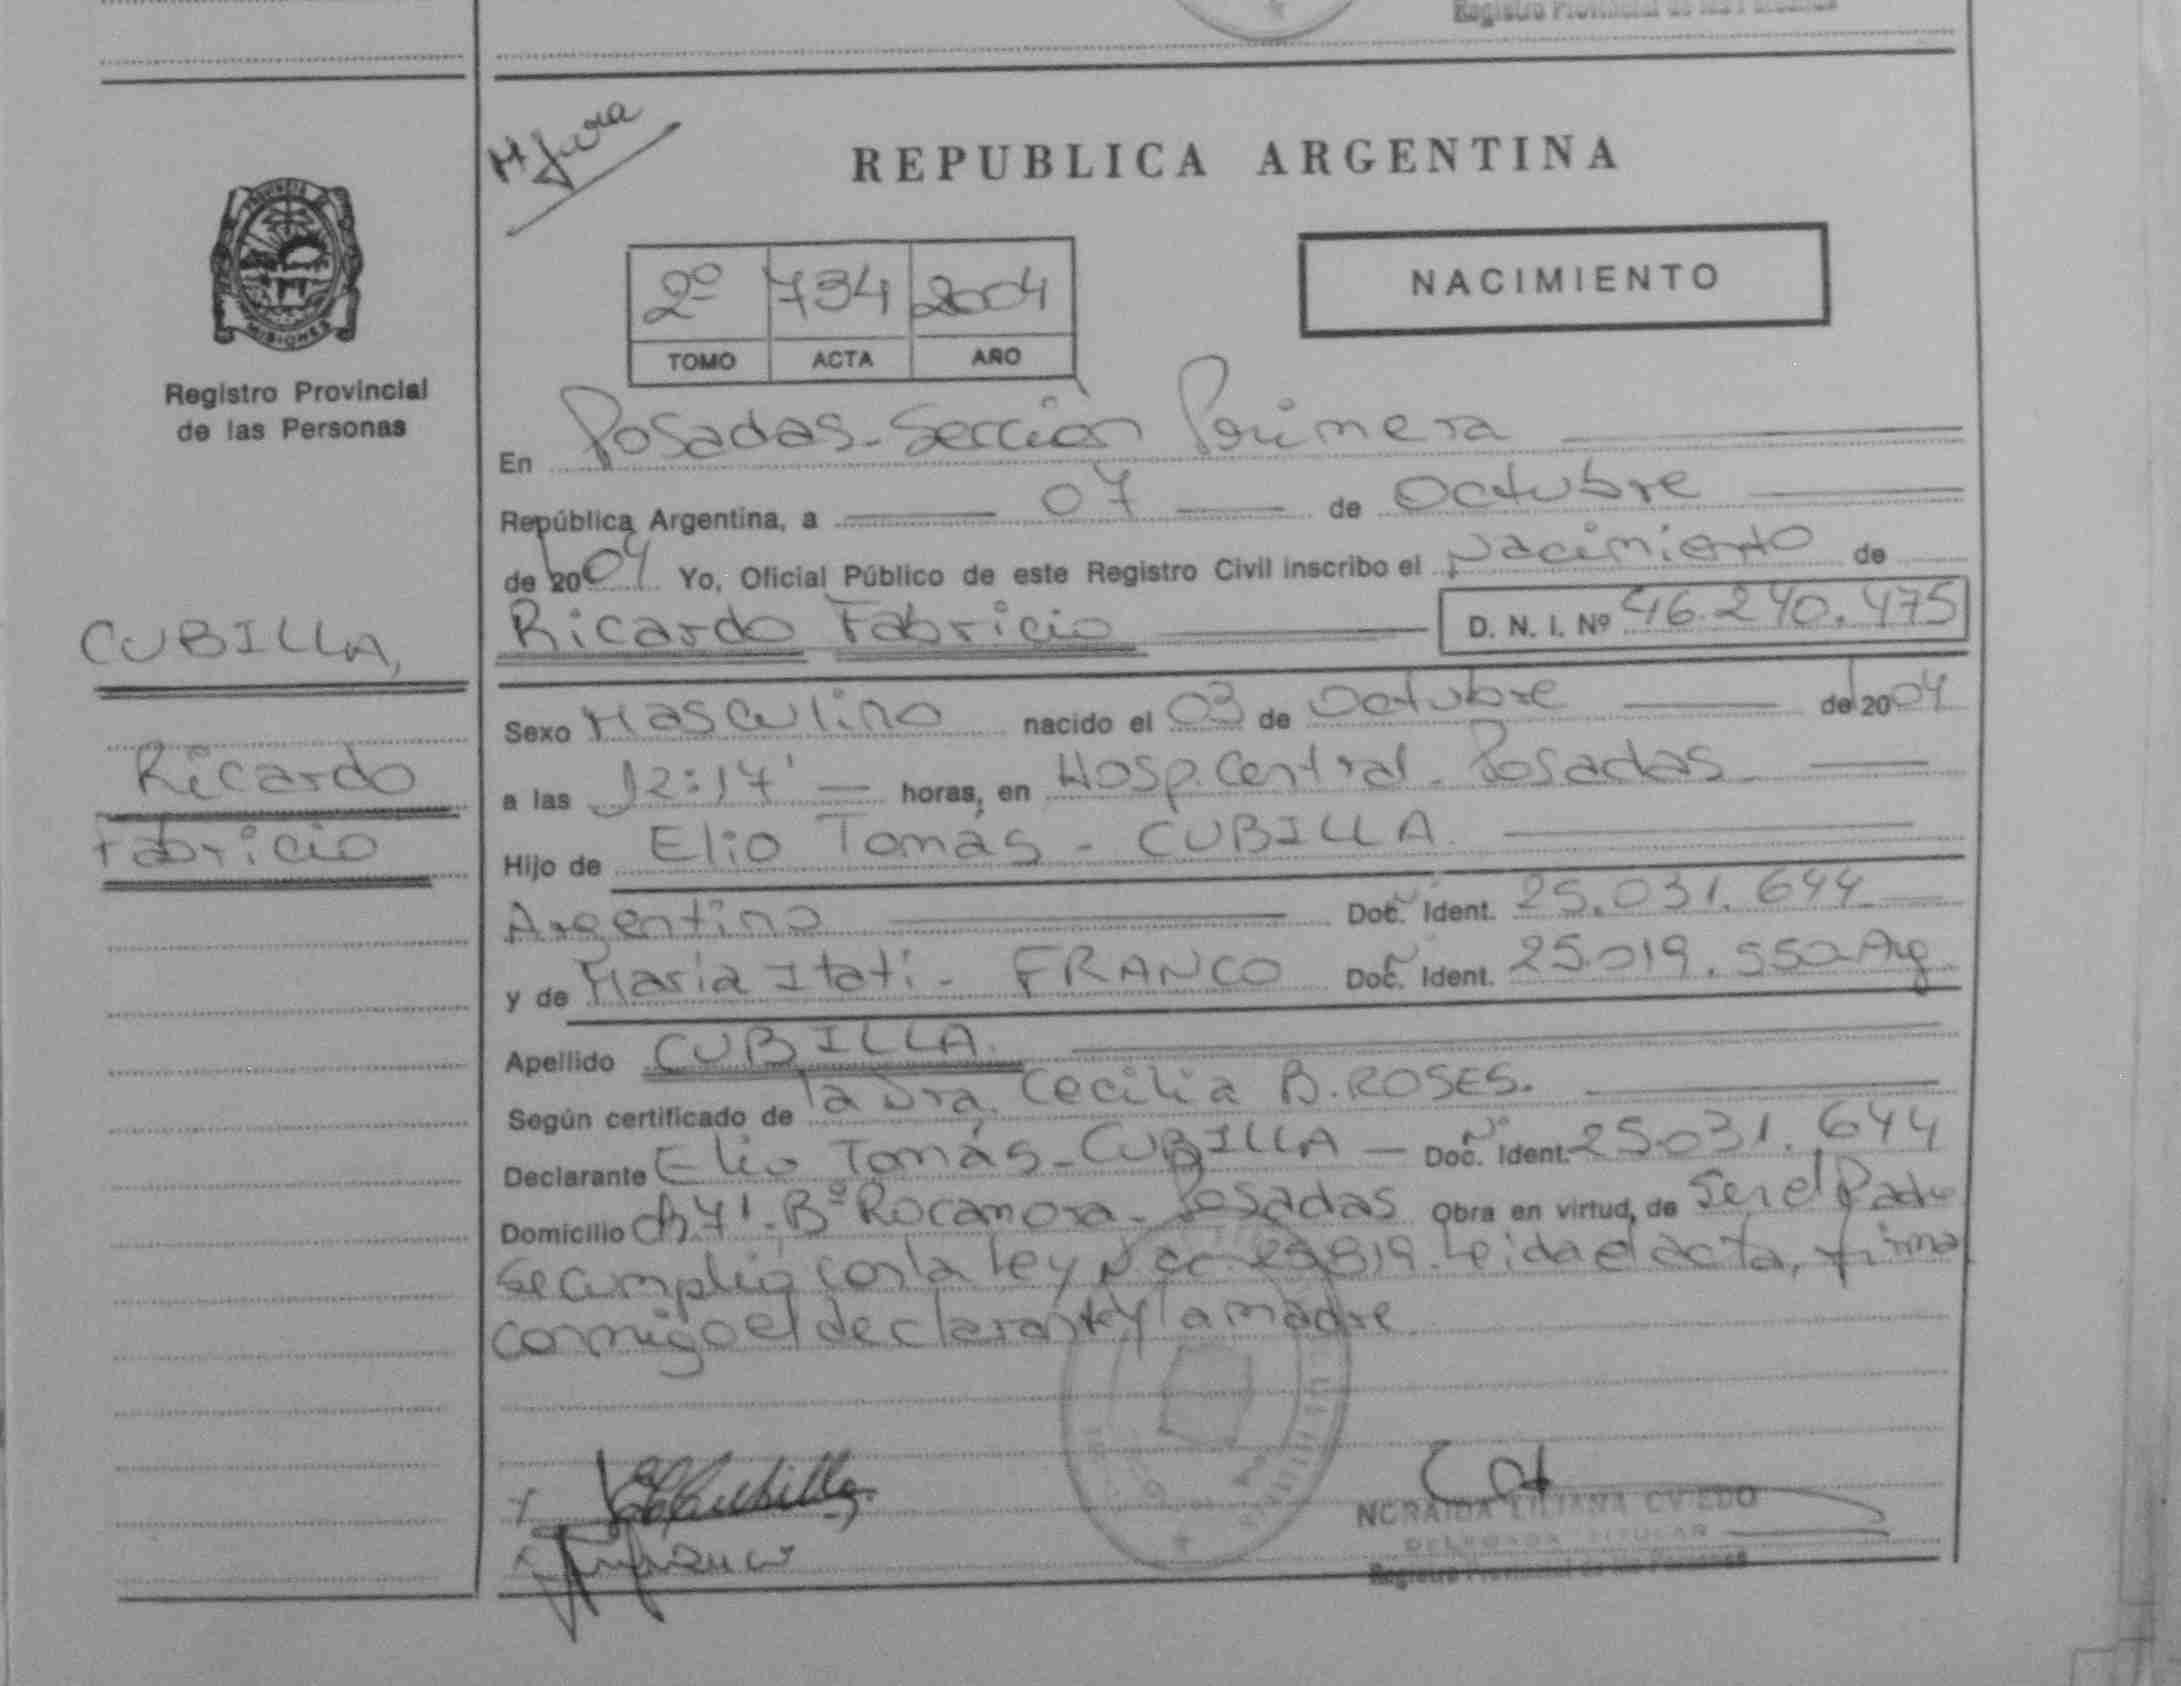 Registro Provincial de las Personas
PROVINCIA DE
MISIONES
Registro Provincial
de las Personas
CUBILLA,
Ricardo
Fabricio
REPUBLICA ARGENTINA
2º 734 2004
TOMO ACTA AÑO
NACIMIENTO
En Posadas - Sección Primera
República Argentina, a 07 de Octubre
de 2004 Yo, Oficial Público de este Registro Civil inscribo el Nacimiento de
Ricardo Fabricio D. N. I. Nº 46.240.475
Sexo Masculino nacido el 03 de Octubre de 2004
a las 12:17' horas, en Hosp. Central - Posadas
Hijo de Elio Tomás - CUBILLA
Argentino Doc. Ident. 25.031.644
y de Maria Itati - FRANCO Doc. Ident. 25.019.550 Arg.
Apellido CUBILLA
Según certificado de la Dra. Cecilia B. ROSES.
Declarante Elio Tomás - CUBILLA Doc. Ident. 25.031.644
Domicilio Ch. 71 - Bº Rocamora - Posadas Obra en virtud, de Ser el Padre
Se cumplió con la Ley Nac. 25.819. Leida el acta, firma
conmigo el declarante y la madre
NORAIDA LILIANA OVIEDO
DELEGADA TITULAR
Registro Provincial de las Personas